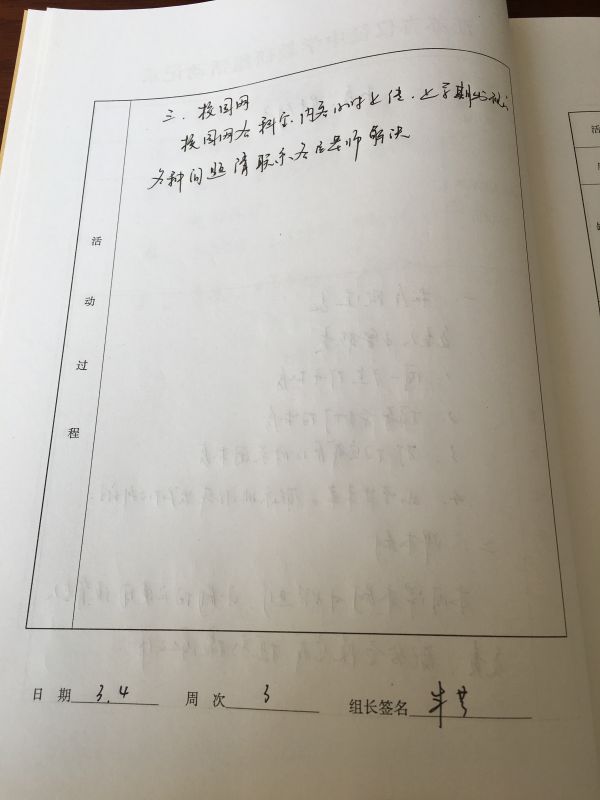 三、校园网
校园网各科室内容及时上传，上学期出现的
各种问题请联系各位老师解决
活动过程
日期 3.4 周次 3 组长签名